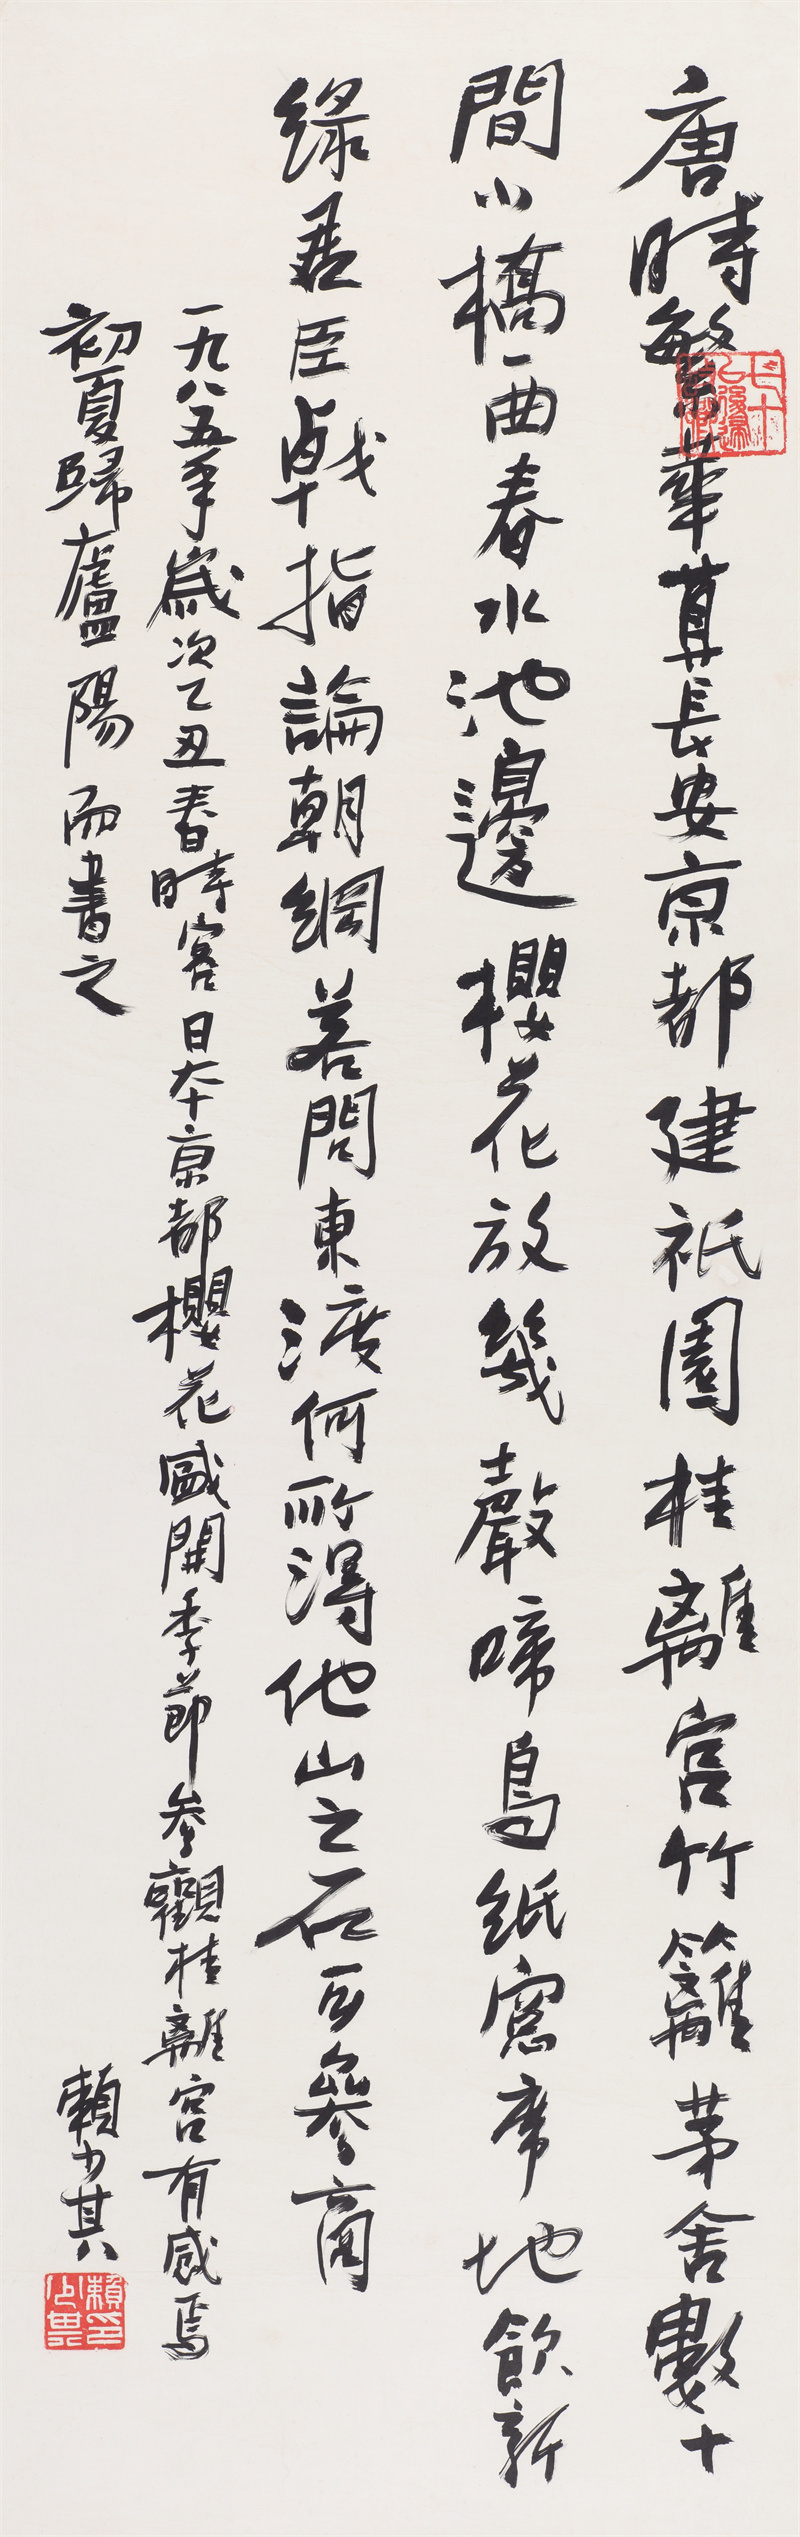 唐時繁華算長安京都建祇園桂離宮竹籬茅舍數十
間小橋西春水池邊櫻花放幾聲啼鳥紙窗席地飲新
綠君臣戟指論朝綱若問東渡何所得他山之石可參商
一九八五年歲次乙丑春時客日本京都櫻花盛開季節參觀桂離宮有感焉
初夏歸廬陽而書之 賴少其